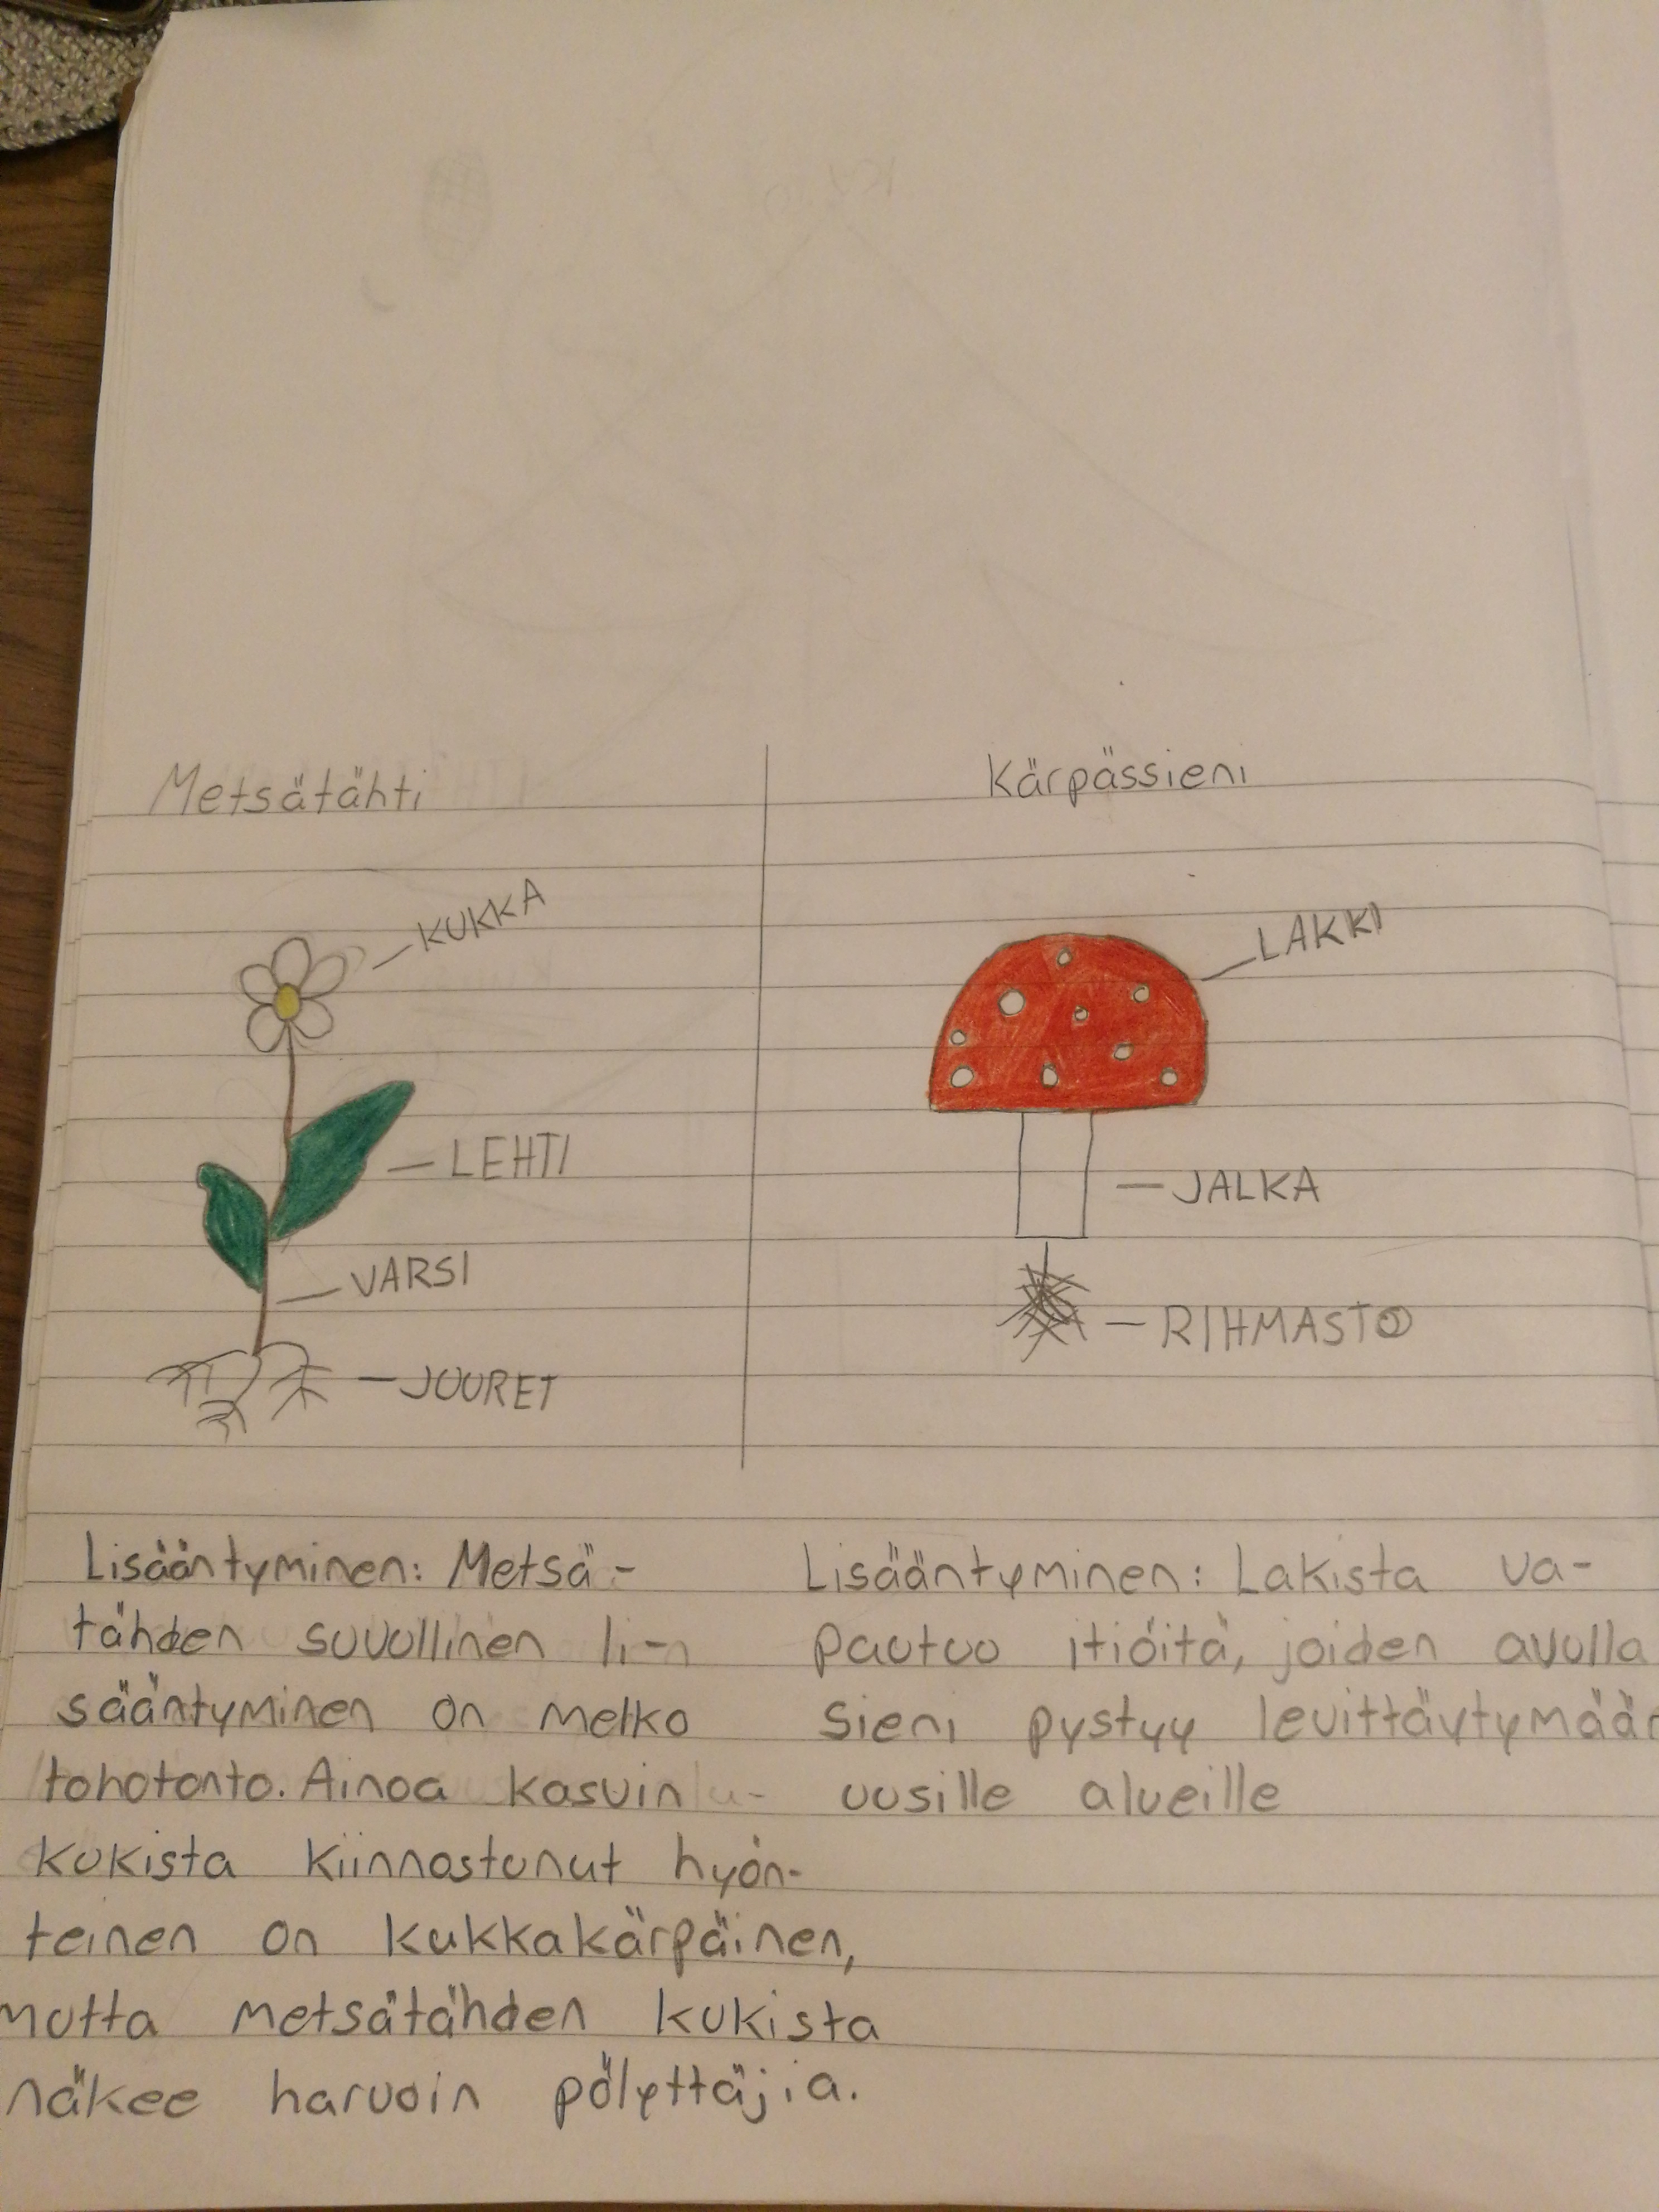 Metsätähti
KUKKA
LEHTI
VARSI
JUURET
Lisääntyminen: Metsä-
tähden suvullinen li-
sääntyminen on melko
tehotonta. Ainoa kasvin
kukista kiinnostunut hyön-
teinen on kukkakärpäinen,
mutta metsätähden kukista
näkee harvoin pölyttäjiä.
Kärpässieni
LAKKI
JALKA
RIHMASTO
Lisääntyminen: Lakista va-
pautuu itiöitä, joiden avulla
sieni pystyy levittäytymään
uusille alueille